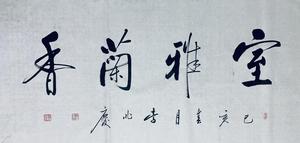 室雅蘭香
己亥春月李兆慶